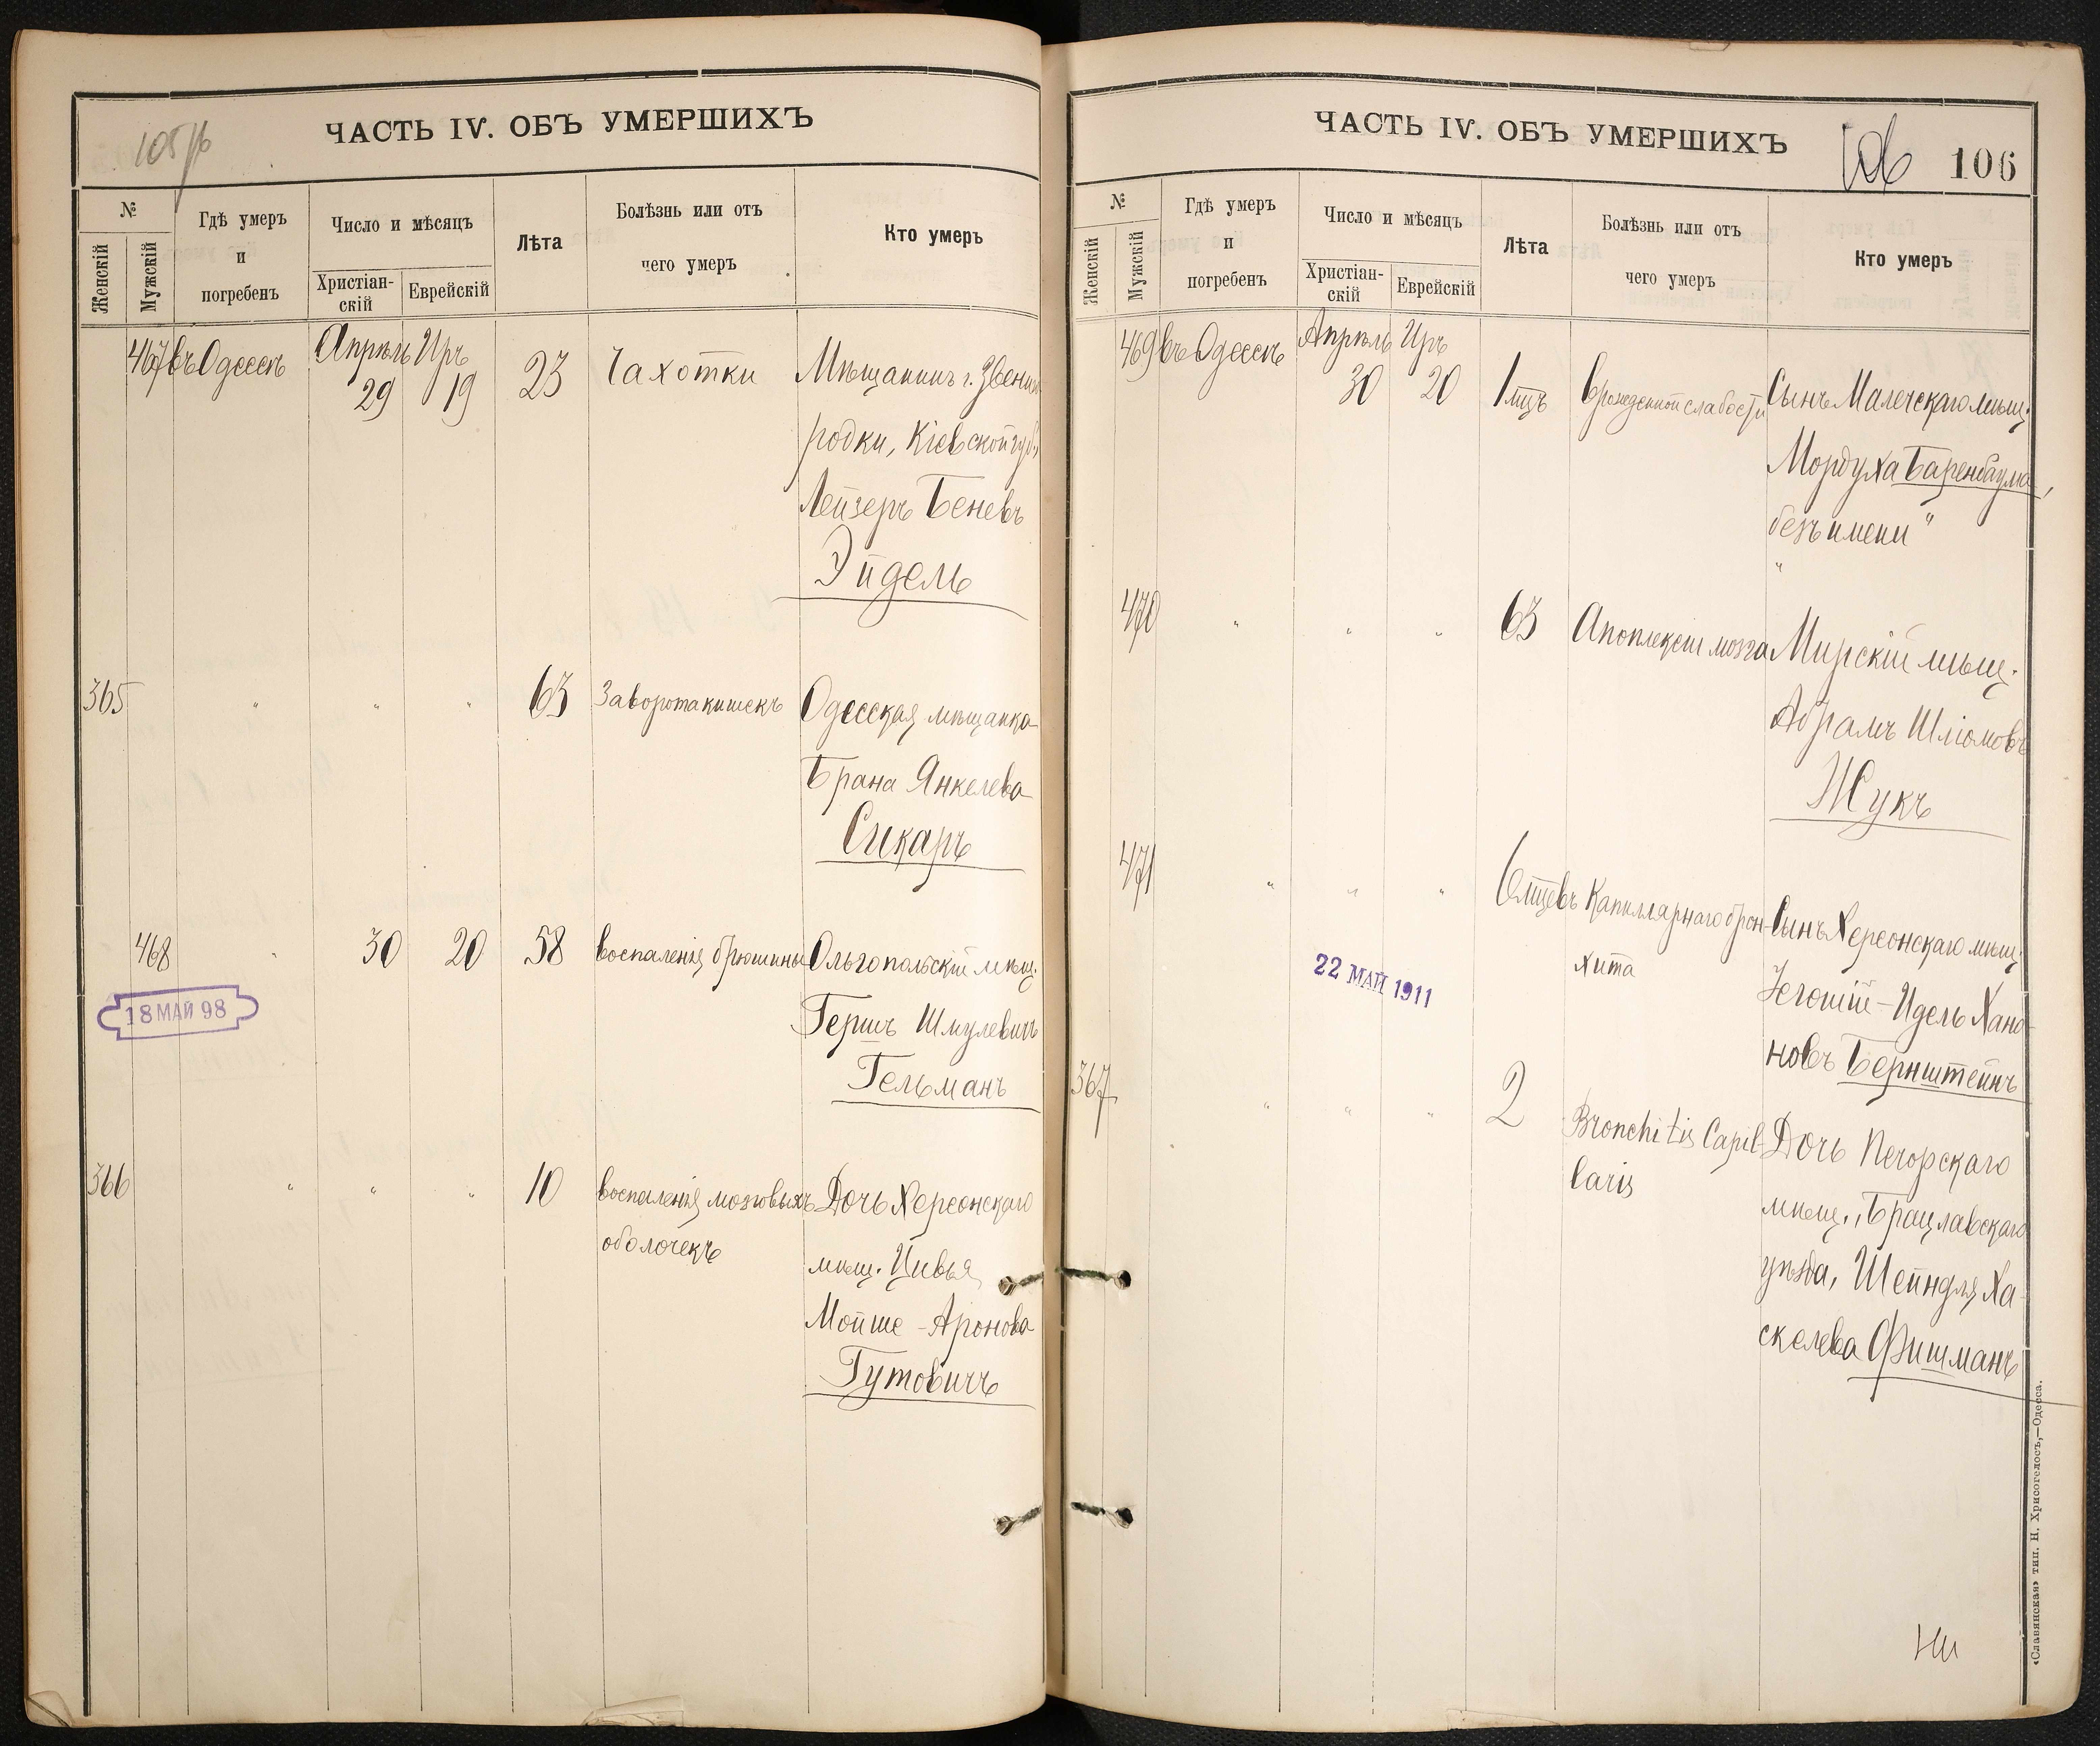 ЧАСТЬ IV. ОБЪ УМЕРШИХЪ
№
Женскій
Мужскій
Гдѣ умеръ
и
погребенъ
Число и мѣсяцъ
Христіан-
скій
Еврейскій
Лѣта
Болѣзнь или отъ
чего умеръ
Кто умеръ
467 въ Одессѣ Апрѣль 29 Иръ 19 23 Чахотки Мѣщанинъ г. Звениго
родки, Кіевской губ.,
Лейзеръ Беневъ
Эйдель
365 " " " 63 Заворота кишекъ Одесская мѣщанка
Брана Янкелева
Сикаръ
468 " 30 20 58 воспаленія брюшины Ольгопольскій мѣщ.
18 МАЙ 98
Гершъ Шмулевичъ
Гельманъ
366 " " " 10 воспаленія мозговыхъ Дочь Херсонскаго
оболочекъ
мѣщ. Цивья
Мойше-Аронова
Гутовичъ
ЧАСТЬ IV. ОБЪ УМЕРШИХЪ
106 106
№
Женскій
Мужскій
Гдѣ умеръ
и
погребенъ
Число и мѣсяцъ
Христіан-
скій
Еврейскій
Лѣта
Болѣзнь или отъ
чего умеръ
Кто умеръ
469 въ Одессѣ Апрѣль 30 Иръ 20 1 мцъ врожденной слабости Сынъ Малечскаго мѣщ.
Мордуха Баренбаума,
"безъ имени"
470 " " " 63 Апоплексіи мозга Мирскій мѣщ.
Абрамъ Шліомовъ
Жукъ
471 " " " 6 мцевъ Капиллярнаго брон- Сынъ Херсонскаго мѣщ.
хита
22 МАЙ 1911
Іегошій-Идель Хано-
новъ Бернштейнъ
367 " " " 2 Bronchitis Capil- Дочь Печорскаго
laris
мѣщ., Брацлавскаго
уѣзда, Шейндля Ха-
скелева Фишманъ
«Славянская» тип. Н. Хрисогелосъ,—Одесса.